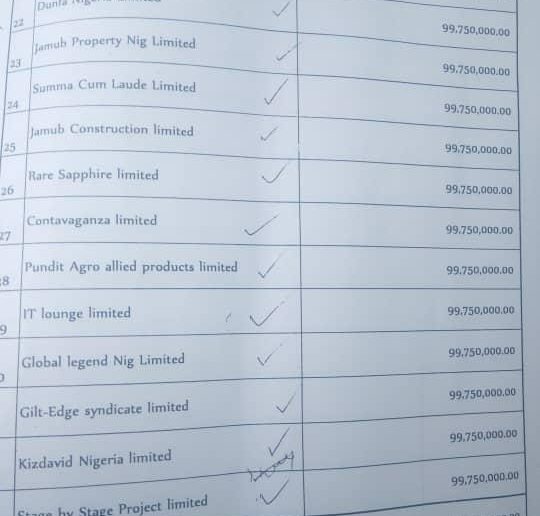 22 Limited 99,750,000.00
23 Jamub Property Nig Limited 99,750,000.00
24 Summa Cum Laude Limited 99,750,000.00
25 Jamub Construction limited 99,750,000.00
26 Rare Sapphire limited 99,750,000.00
27 Contavaganza limited 99,750,000.00
8 Pundit Agro allied products limited 99,750,000.00
9 IT lounge limited 99,750,000.00
Global legend Nig Limited 99,750,000.00
Gilt-Edge syndicate limited 99,750,000.00
Kizdavid Nigeria limited 99,750,000.00
Stage by Stage Project limited 99,750,000.00